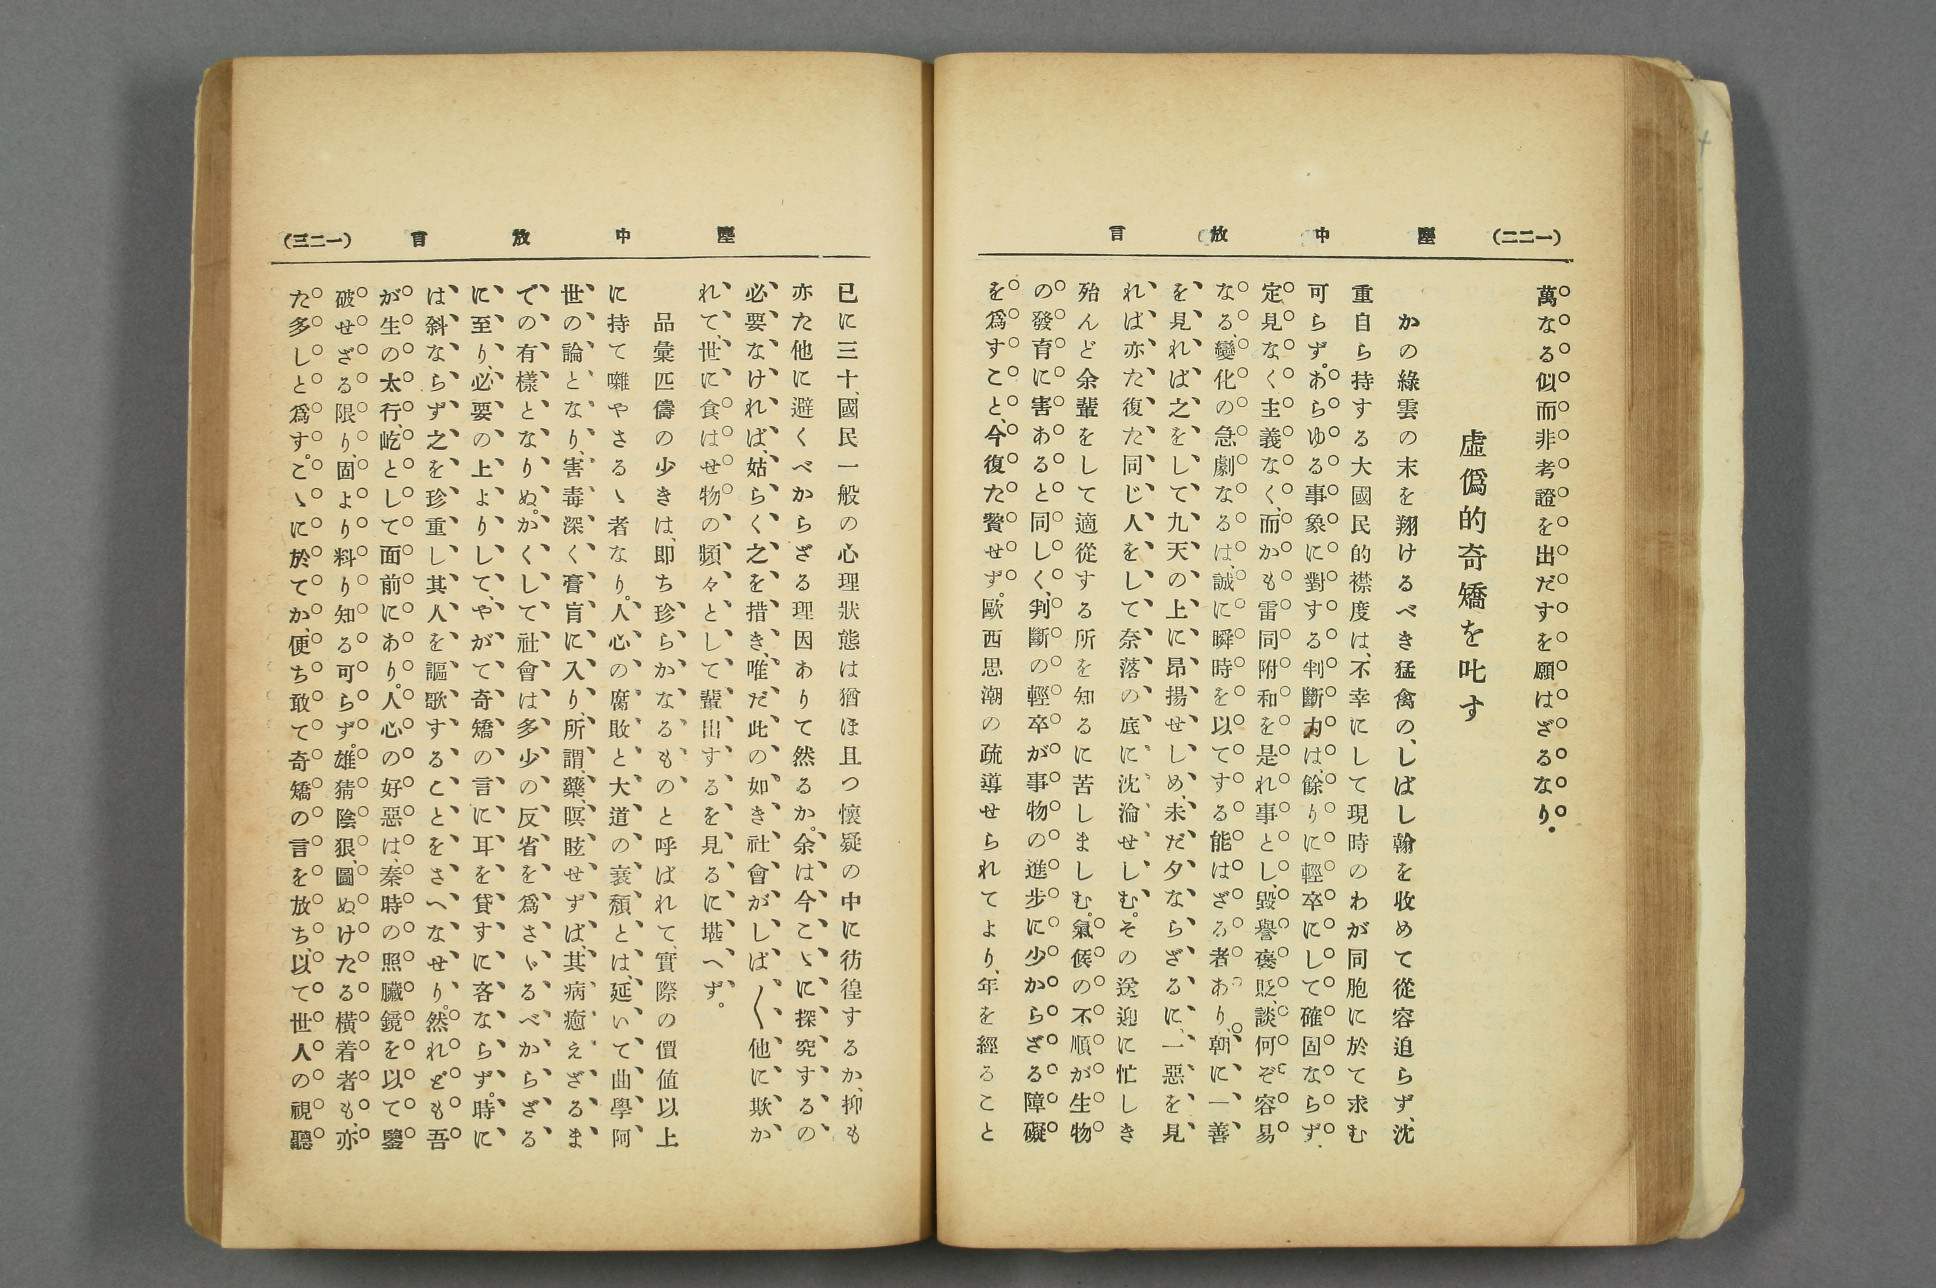 (一二二)
塵中放言
萬なる似而非考證を出だすを願はざるなり。
虛僞的奇矯を叱す
かの綠雲の末を翔けるべき猛禽の、しばし翰を收めて從容迫らず、沈
重自ら持する大國民的襟度は、不幸にして現時のわが同胞に於て求む
可らず。あらゆる事象に對する判斷力は、餘りに輕卒にして確固ならず、
定見なく主義なく、而かも雷同附和を是れ事とし、毀譽褒貶、談何ぞ容易
なる、變化の急劇なるは、誠に瞬時を以てする能はざる者あり、朝に一善
を見れば之をして九天の上に昂揚せしめ、未だ夕ならざるに、一惡を見
れば亦た復た同じ人をして奈落の底に沈淪せしむ。その送迎に忙しき
殆んど余輩をして適從する所を知るに苦しましむ。氣候の不順が生物
の發育に害あると同じく、判斷の輕卒が事物の進步に少からざる障礙
を爲すこと、今復た贅せず。歐西思潮の疏導せられてより、年を經ること
(一二三)
塵中放言
已に三十、國民一般の心理狀態は猶ほ且つ懷疑の中に彷徨するか、抑も
亦た他に避くべからざる理因ありて然るか。余は今こゝに探究するの
必要なければ、姑らく之を措き、唯だ此の如き社會がしば〱他に欺か
れて、世に食はせ物の頻々として輩出するを見るに堪へず。
品彙匹儔の少きは、卽ち珍らかなるものと呼ばれて、實際の價値以上
に持て囃やさるゝ者なり。人心の腐敗と大道の衰頽とは、延いて曲學阿
世の論となり、害毒深く膏肓に入り、所謂、藥、瞑眩せずば、其病癒えざるま
での有樣となりぬ。かくして社會は多少の反省を爲さゞるべからざる
に至り、必要の上よりして、やがて奇矯の言に耳を貸すに吝ならず。時に
は斜ならず之を珍重し其人を謳歌することをさへなせり。然れども吾
が生の太行、屹として面前にあり。人心の好惡は、秦時の照臟鏡を以て鑒
破せざる限り、固より料り知る可らず。雄猜陰狠、圖ぬけたる橫着者も、亦
た多しと爲す。こゝに於てか、便ち敢て奇矯の言を放ち、以て世人の視聽